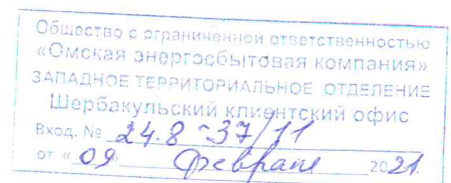 Общество с ограниченной ответственностью
«Омская энергосбытовая компания»
ЗАПАДНОЕ ТЕРРИТОРИАЛЬНОЕ ОТДЕЛЕНИЕ
Шербакульский клиентский офис
Вход. № 24.8-37/11
от «09» февраля 2021